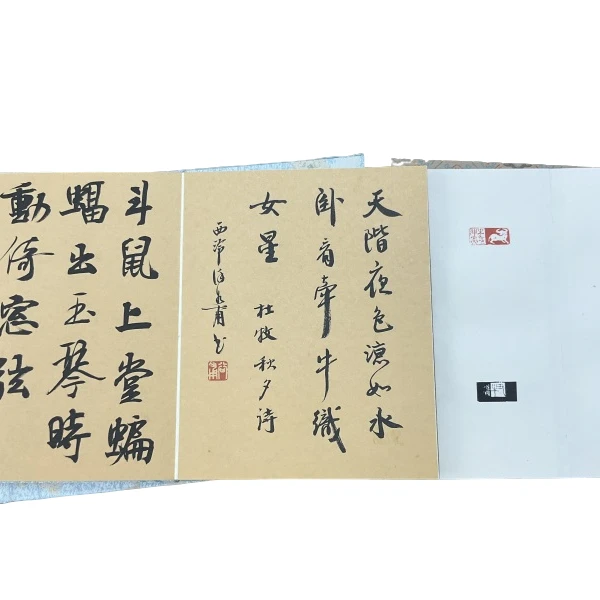 天階夜色涼如水
卧看牽牛織
女星
杜牧秋夕詩
西泠
斗鼠上堂蝙
蝠出玉琴時
動倚窓弦